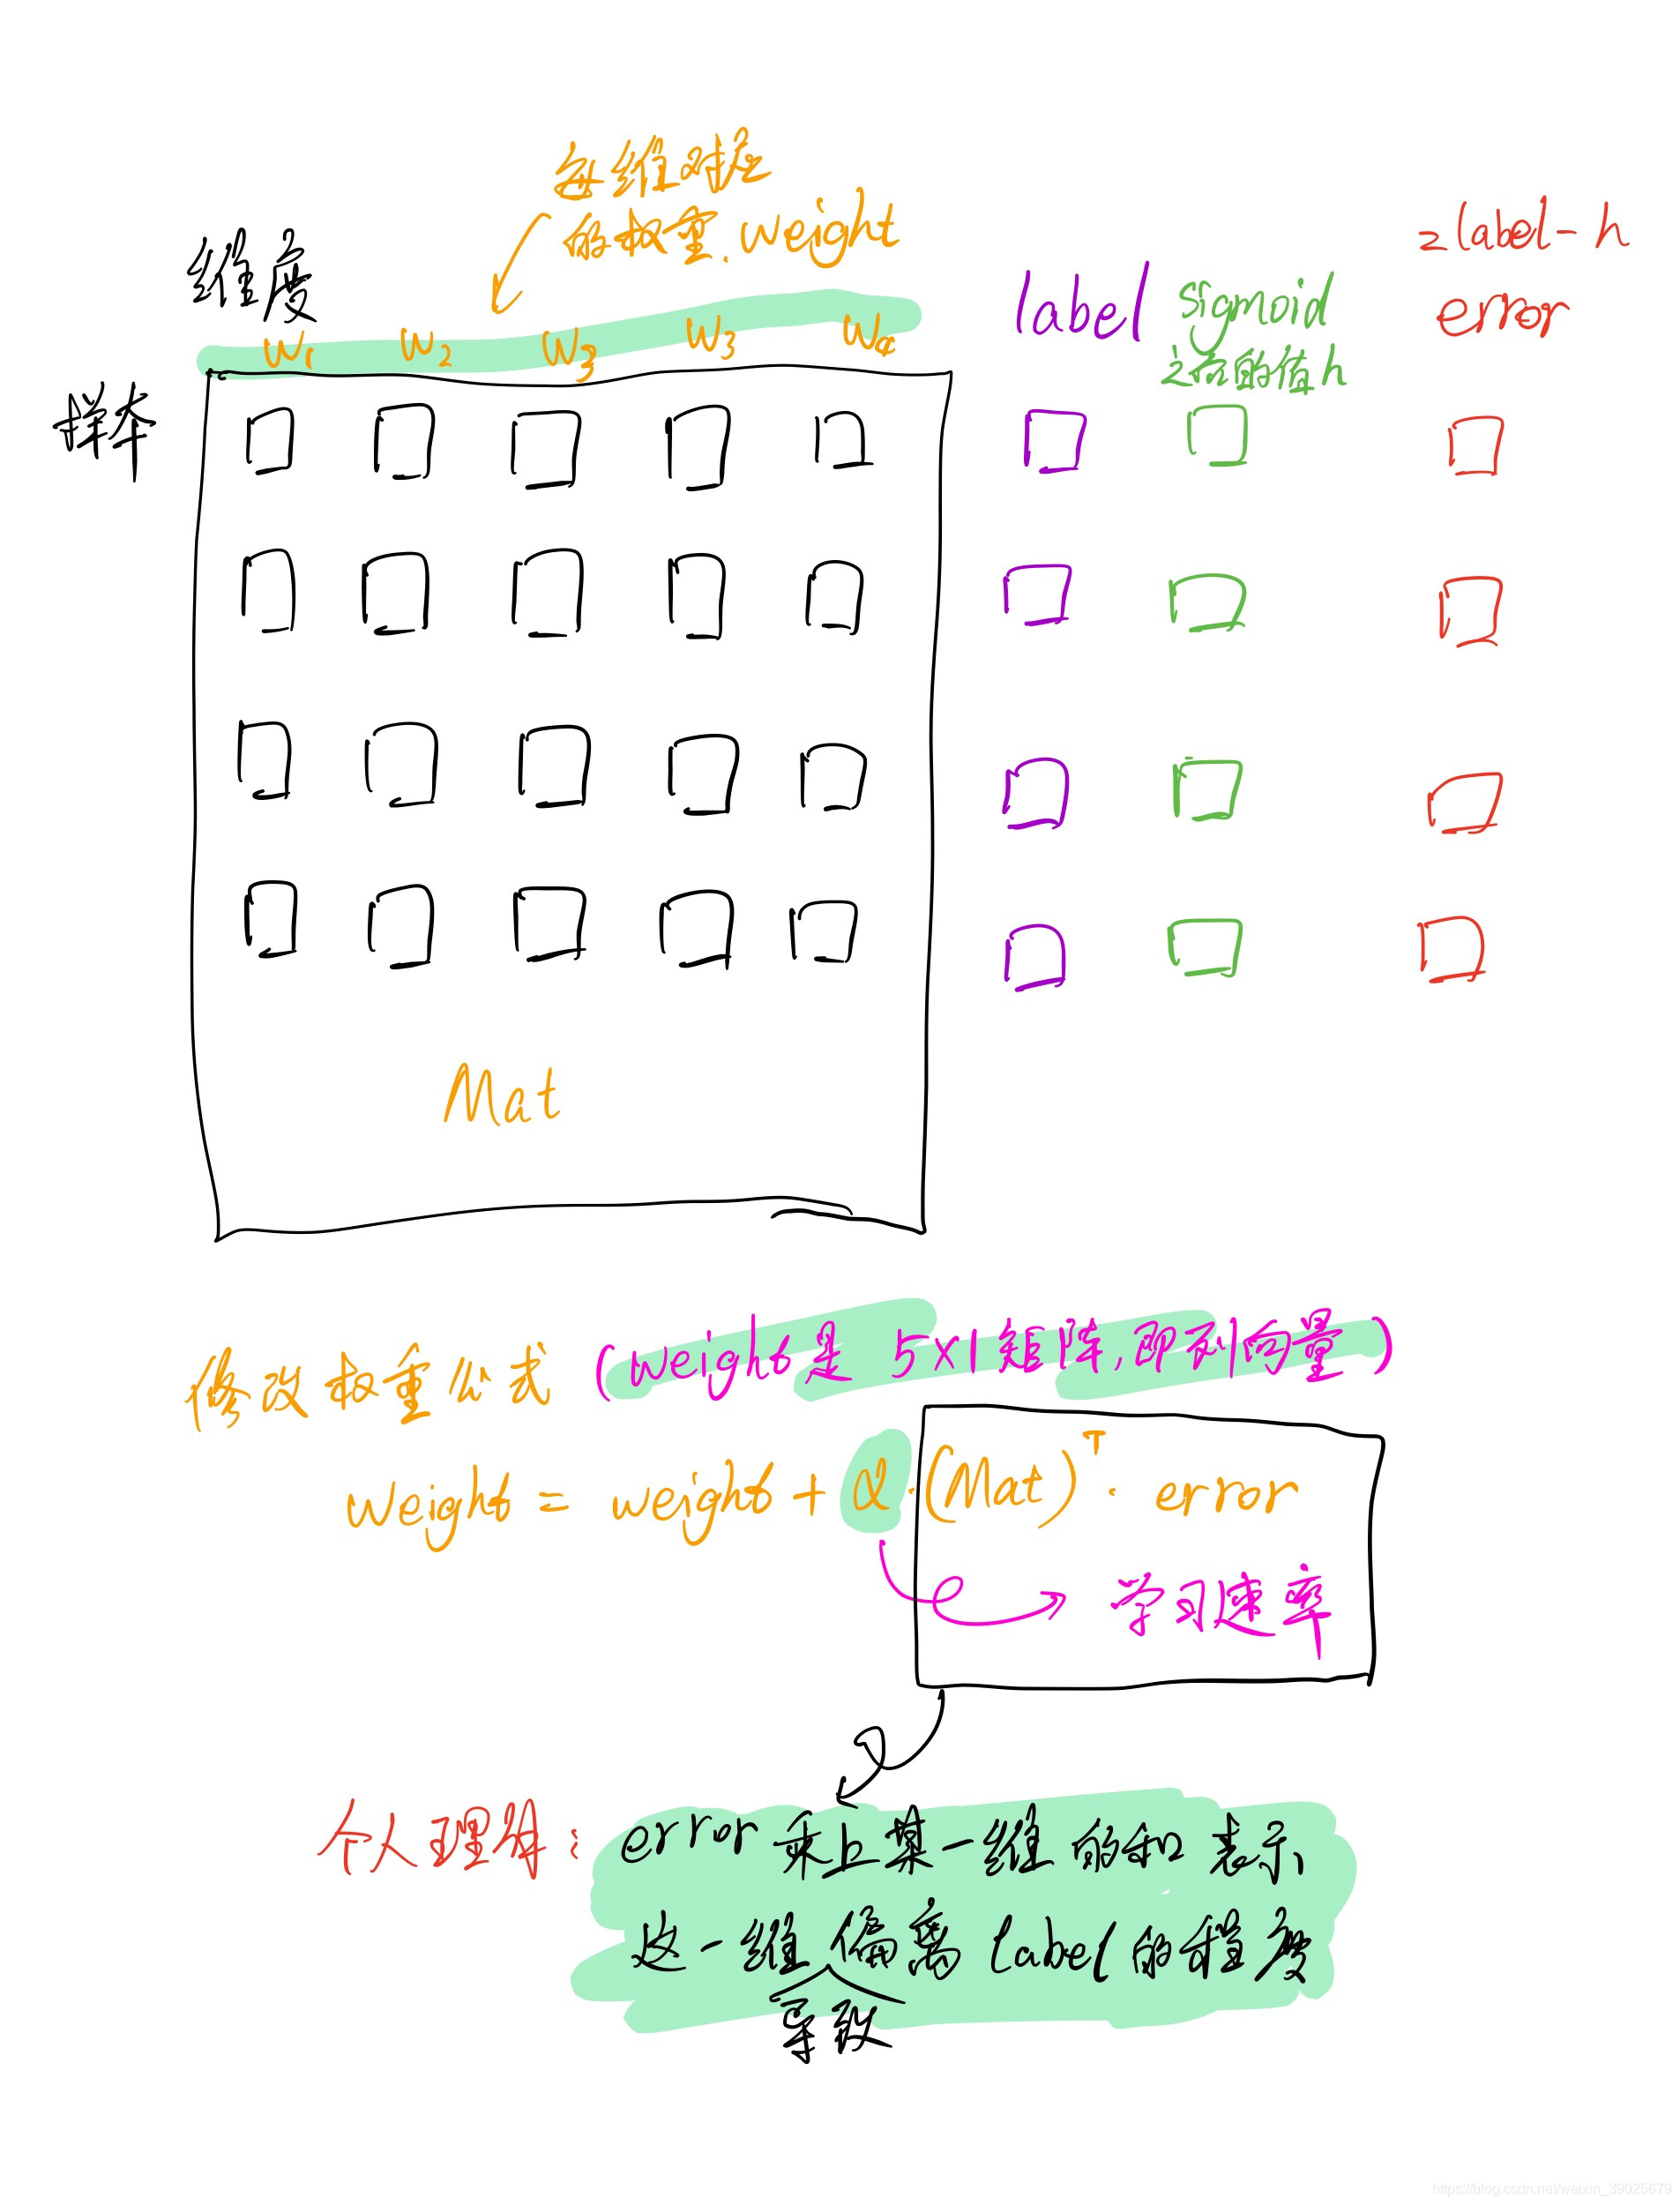 每维对应
的权重.weight
维度
=label-h
label
sigmoid
error
之后的值h
w₁ w₂ w₃ w₃
样本
Mat
修改权重公式 (weight是 5x1矩阵,即列向量)
weight = weight + α·(Mat)ᵀ· error
学习速率
个人理解: error乘上某一维的和表示
这一维偏离label的程度
导数
https://blog.csdn.net/weixin_39025679